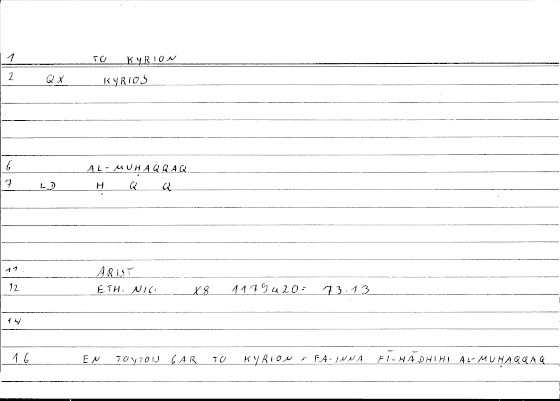 1 TO KYRION
2 QX KYRIOS
6 AL-MUḤAQQAQ
7 LD Ḥ Q Q
11 ARIST
12 ETH. NIC. X8 1179a20 = 73.13
14
16 EN TOYTOIS GAR TO KYRION = FA-INNA FĪ-HĀDHIHI AL-MUḤAQQAQ